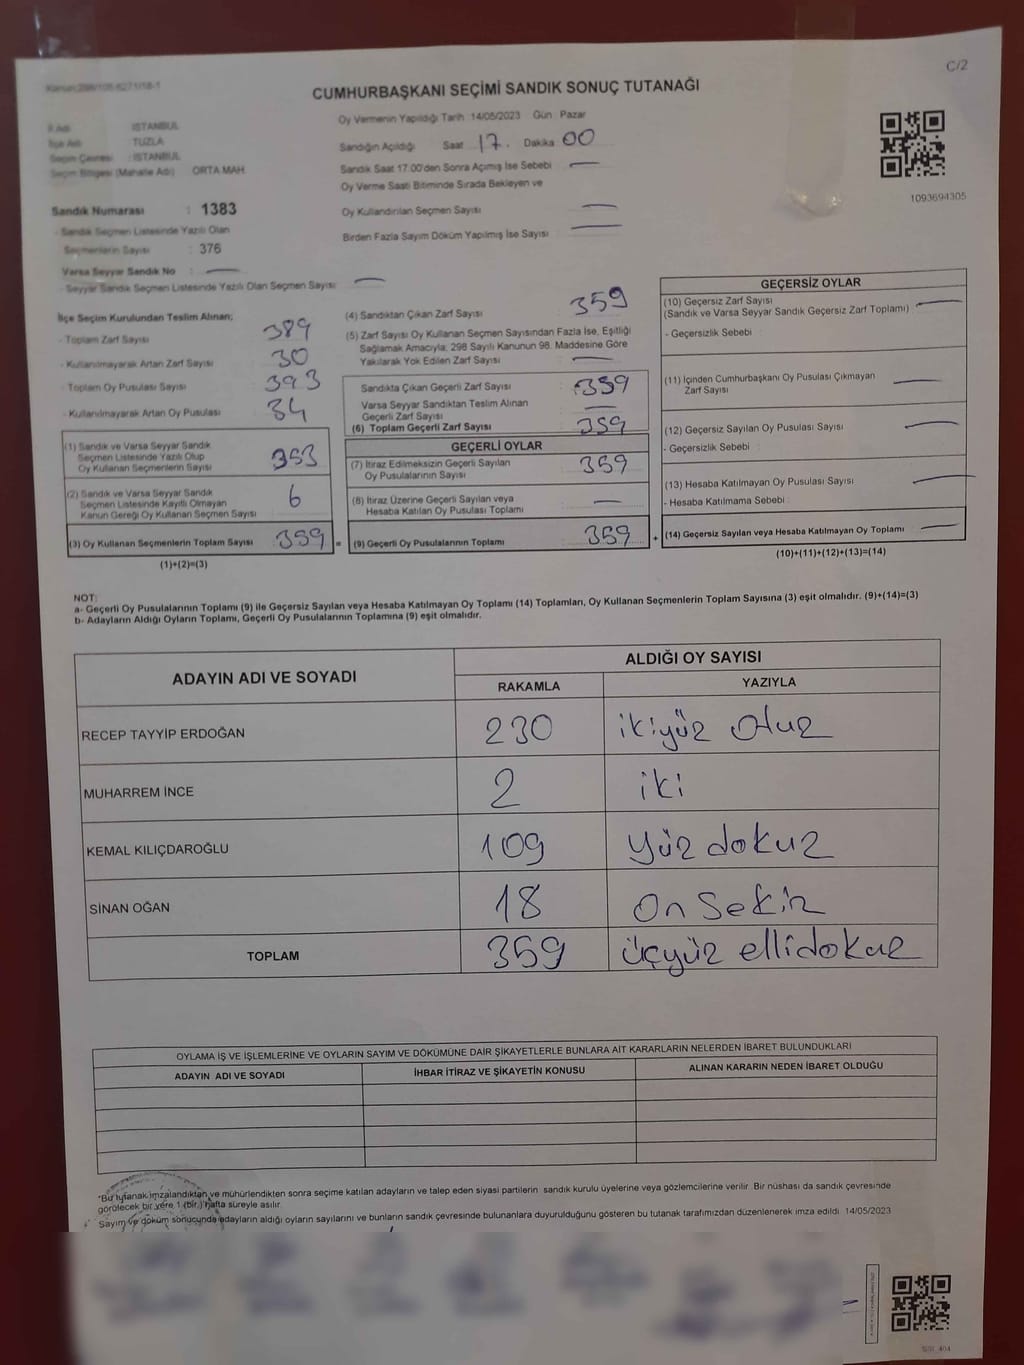 C/2
Kanun:298/105-6271/18-1
CUMHURBAŞKANI SEÇİMİ SANDIK SONUÇ TUTANAĞI
İl Adı : İSTANBUL
İlçe Adı : TUZLA
Seçim Çevresi : İSTANBUL
Seçim Bölgesi (Mahalle Adı) : ORTA MAH.
Sandık Numarası : 1383
- Sandık Seçmen Listesinde Yazılı Olan
Seçmenlerin Sayısı : 376
Varsa Seyyar Sandık No : —
- Seyyar Sandık Seçmen Listesinde Yazılı Olan Seçmen Sayısı: —
Oy Vermenin Yapıldığı Tarih 14/05/2023 Gün : Pazar
Sandığın Açıldığı Saat 17. Dakika 00
Sandık Saat 17.00'den Sonra Açımış İse Sebebi —
Oy Verme Saati Bitiminde Sırada Bekleyen ve
Oy Kullandırılan Seçmen Sayısı —
Birden Fazla Sayım Döküm Yapılmış İse Sayısı —
1093694305
İlçe Seçim Kurulundan Teslim Alınan;
- Toplam Zarf Sayısı 389
- Kullanılmayarak Artan Zarf Sayısı 30
- Toplam Oy Pusulası Sayısı 393
- Kullanılmayarak Artan Oy Pusulası 34
(1) Sandık ve Varsa Seyyar Sandık
Seçmen Listesinde Yazılı Olup
Oy Kullanan Seçmenlerin Sayısı 353
(2) Sandık ve Varsa Seyyar Sandık
Seçmen Listesinde Kayıtlı Olmayan
Kanun Gereği Oy Kullanan Seçmen Sayısı 6
(3) Oy Kullanan Seçmenlerin Toplam Sayısı : 359 =
(1)+(2)=(3)
(4) Sandıktan Çıkan Zarf Sayısı 359
(5) Zarf Sayısı Oy Kullanan Seçmen Sayısından Fazla İse, Eşitliği
Sağlamak Amacıyla; 298 Sayılı Kanunun 98. Maddesine Göre
Yakılarak Yok Edilen Zarf Sayısı —
Sandıkta Çıkan Geçerli Zarf Sayısı 359
Varsa Seyyar Sandıktan Teslim Alınan
Geçerli Zarf Sayısı —
(6) Toplam Geçerli Zarf Sayısı 359
GEÇERLİ OYLAR
(7) İtiraz Edilmeksizin Geçerli Sayılan
Oy Pusulalarının Sayısı 359
(8) İtiraz Üzerine Geçerli Sayılan veya
Hesaba Katılan Oy Pusulası Toplamı —
(9) Geçerli Oy Pusulalarının Toplamı 359 +
GEÇERSİZ OYLAR
(10) Geçersiz Zarf Sayısı
(Sandık ve Varsa Seyyar Sandık Geçersiz Zarf Toplamı) : —
- Geçersizlik Sebebi :
(11) İçinden Cumhurbaşkanı Oy Pusulası Çıkmayan
Zarf Sayısı —
(12) Geçersiz Sayılan Oy Pusulası Sayısı —
- Geçersizlik Sebebi :
(13) Hesaba Katılmayan Oy Pusulası Sayısı —
- Hesaba Katılmama Sebebi :
(14) Geçersiz Sayılan veya Hesaba Katılmayan Oy Toplamı —
(10)+(11)+(12)+(13)=(14)
NOT:
a- Geçerli Oy Pusulalarının Toplamı (9) ile Geçersiz Sayılan veya Hesaba Katılmayan Oy Toplamı (14) Toplamları, Oy Kullanan Seçmenlerin Toplam Sayısına (3) eşit olmalıdır. (9)+(14)=(3)
b- Adayların Aldığı Oyların Toplamı, Geçerli Oy Pusulalarının Toplamına (9) eşit olmalıdır.
ADAYIN ADI VE SOYADI ALDIĞI OY SAYISI
RAKAMLA YAZIYLA
RECEP TAYYİP ERDOĞAN 230 ikiyüz otuz
MUHARREM İNCE 2 iki
KEMAL KILIÇDAROĞLU 109 yüz dokuz
SİNAN OĞAN 18 on sekiz
TOPLAM 359 üçyüz ellidokuz
OYLAMA İŞ VE İŞLEMLERİNE VE OYLARIN SAYIM VE DÖKÜMÜNE DAİR ŞİKAYETLERLE BUNLARA AİT KARARLARIN NELERDEN İBARET BULUNDUKLARI
ADAYIN ADI VE SOYADI İHBAR İTİRAZ VE ŞİKAYETİN KONUSU ALINAN KARARIN NEDEN İBARET OLDUĞU
*Bu tutanak imzalandıktan ve mühürlendikten sonra seçime katılan adayların ve talep eden siyasi partilerin sandık kurulu üyelerine veya gözlemcilerine verilir. Bir nüshası da sandık çevresinde
görülecek bir yere 1 (bir) hafta süreyle asılır.
Sayım ve döküm sonucunda adayların aldığı oyların sayılarını ve bunların sandık çevresinde bulunanlara duyurulduğunu gösteren bu tutanak tarafımızdan düzenlenerek imza edildi. 14/05/2023